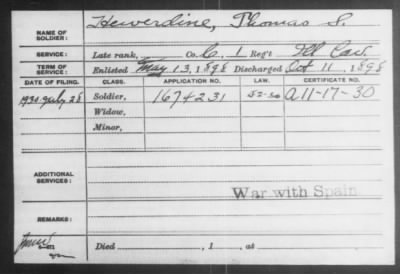 NAME OF SOLDIER: Hewerdine, Thomas S.
SERVICE: Late rank, Co. G, 1 Reg't Ill Cav
TERM OF SERVICE: Enlisted May 13, 1898 Discharged Oct 11, 1898
DATE OF FILING. CLASS. APPLICATION NO. LAW. CERTIFICATE NO.
1930 July 28 Soldier, 1674231 A 11-17-30
Widow,
Minor,
ADDITIONAL SERVICES: War with Spain
REMARKS:
Died , 1 , at